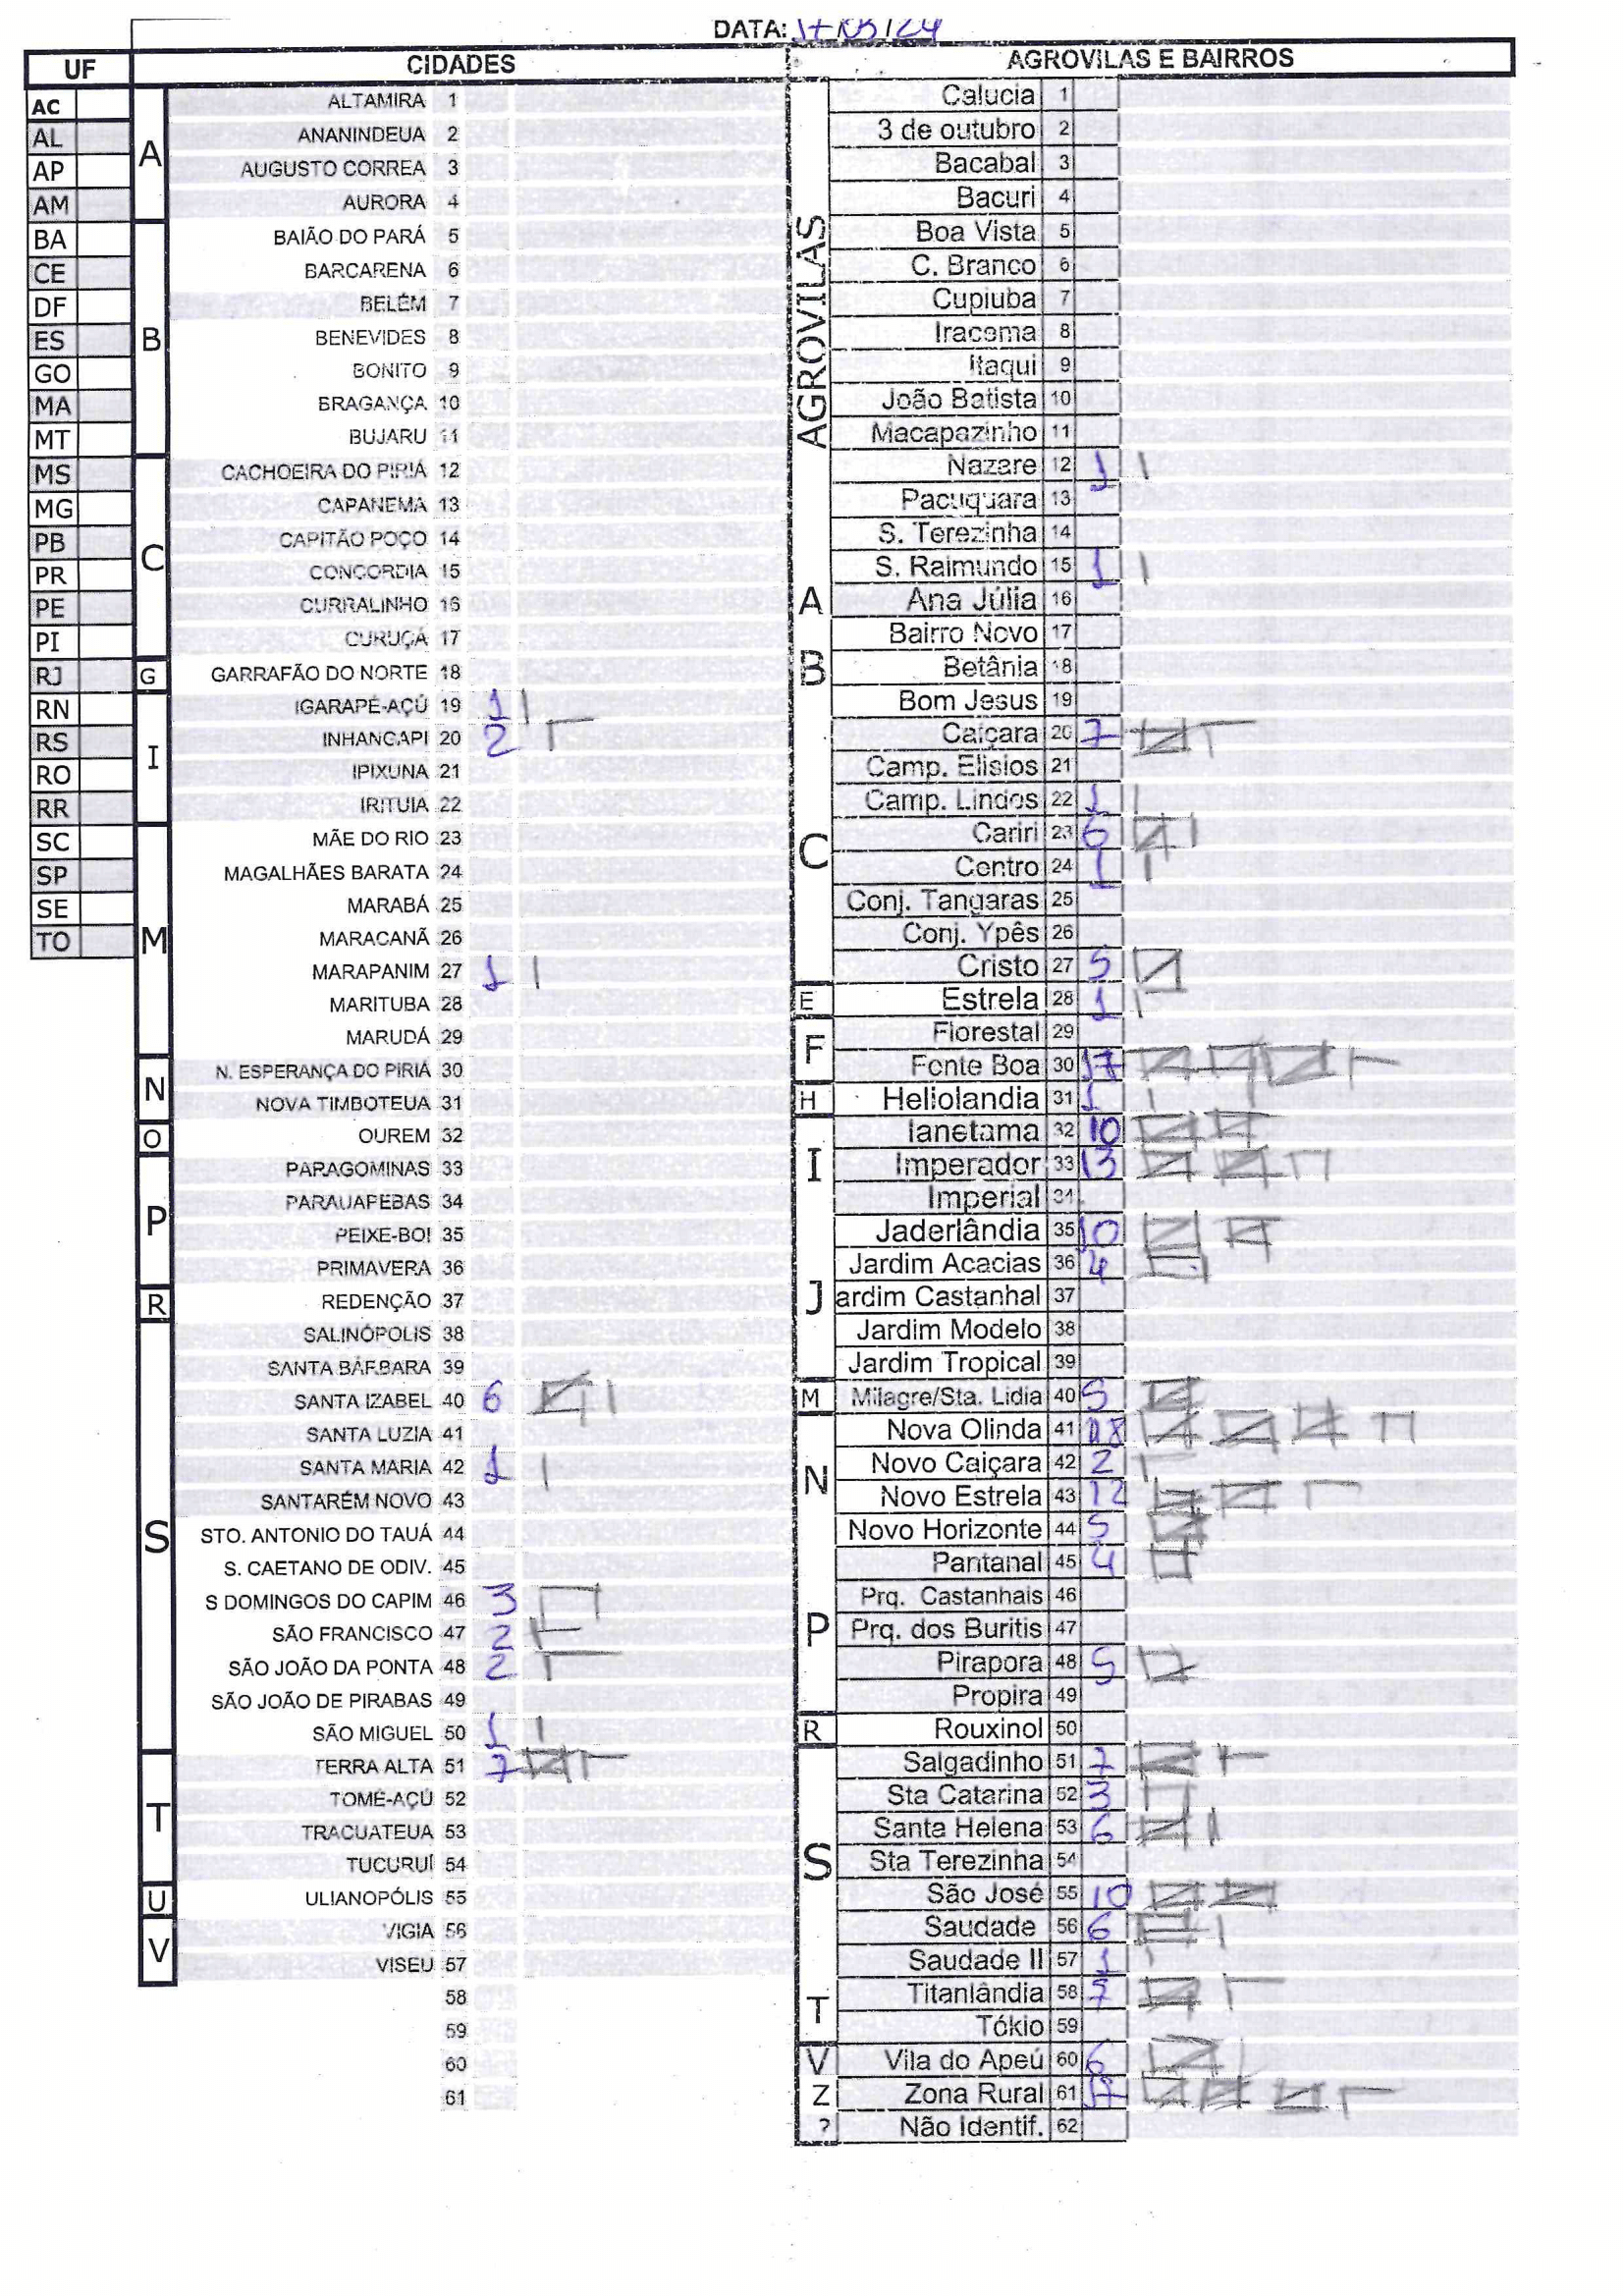 DATA: 17/03/24
UF CIDADES AGROVILAS E BAIRROS
AC
AL
AP
AM
BA
CE
DF
ES
GO
MA
MT
MS
MG
PB
PR
PE
PI
RJ
RN
RS
RO
RR
SC
SP
SE
TO
A
ALTAMIRA 1
ANANINDEUA 2
AUGUSTO CORREA 3
AURORA 4
B
BAIÃO DO PARÁ 5
BARCARENA 6
BELÉM 7
BENEVIDES 8
BONITO 9
BRAGANÇA 10
BUJARU 11
C
CACHOEIRA DO PIRIÁ 12
CAPANEMA 13
CAPITÃO POÇO 14
CONCORDIA 15
CURRALINHO 16
CURUÇÁ 17
G
GARRAFÃO DO NORTE 18
I
IGARAPÉ-AÇÚ 19 1
INHANGAPI 20 2
IPIXUNA 21
IRITUIA 22
M
MÃE DO RIO 23
MAGALHÃES BARATA 24
MARABÁ 25
MARACANÃ 26
MARAPANIM 27 1
MARITUBA 28
MARUDÁ 29
N
N. ESPERANÇA DO PIRIÁ 30
NOVA TIMBOTEUA 31
O
OUREM 32
P
PARAGOMINAS 33
PARAUAPEBAS 34
PEIXE-BOI 35
PRIMAVERA 36
R
REDENÇÃO 37
S
SALINÓPOLIS 38
SANTA BÁRBARA 39
SANTA IZABEL 40 6
SANTA LUZIA 41
SANTA MARIA 42 1
SANTARÉM NOVO 43
STO. ANTONIO DO TAUÁ 44
S. CAETANO DE ODIV. 45
S DOMINGOS DO CAPIM 46 3
SÃO FRANCISCO 47 2
SÃO JOÃO DA PONTA 48 2
SÃO JOÃO DE PIRABAS 49
SÃO MIGUEL 50 1
T
TERRA ALTA 51 7
TOMÉ-AÇÚ 52
TRACUATEUA 53
TUCURUÍ 54
U
ULIANOPÓLIS 55
V
VIGIA 56
VISEU 57
58
59
60
61
AGROVILAS
Calucia 1
3 de outubro 2
Bacabal 3
Bacuri 4
Boa Vista 5
C. Branco 6
Cupiuba 7
Iracema 8
Itaqui 9
João Batista 10
Macapazinho 11
Nazare 12 1
Pacuquara 13
S. Terezinha 14
S. Raimundo 15 1
A
Ana Júlia 16
Bairro Novo 17
B
Betânia 18
Bom Jesus 19
C
Caiçara 20 7
Camp. Elisios 21
Camp. Lindos 22 1
Cariri 23 6
Centro 24 1
Conj. Tangaras 25
Conj. Ypês 26
Cristo 27 5
E
Estrela 28 1
F
Florestal 29
Fonte Boa 30 17
H
Heliolandia 31 1
I
Ianetama 32 10
Imperador 33 13
Imperial 34
J
Jaderlândia 35 10
Jardim Acacias 36 4
ardim Castanhal 37
Jardim Modelo 38
Jardim Tropical 39
M
Milagre/Sta. Lidia 40 5
N
Nova Olinda 41 18
Novo Caiçara 42 2
Novo Estrela 43 12
Novo Horizonte 44 5
P
Pantanal 45 4
Prq. Castanhais 46
Prq. dos Buritis 47
Pirapora 48 5
Propira 49
R
Rouxinol 50
S
Salgadinho 51 7
Sta Catarina 52 3
Santa Helena 53 6
Sta Terezinha 54
São José 55 10
Saudade 56 6
Saudade II 57 1
T
Titanlândia 58 7
Tókio 59
V
Vila do Apeú 60 6
Z
Zona Rural 61 17
?
Não Identif. 62